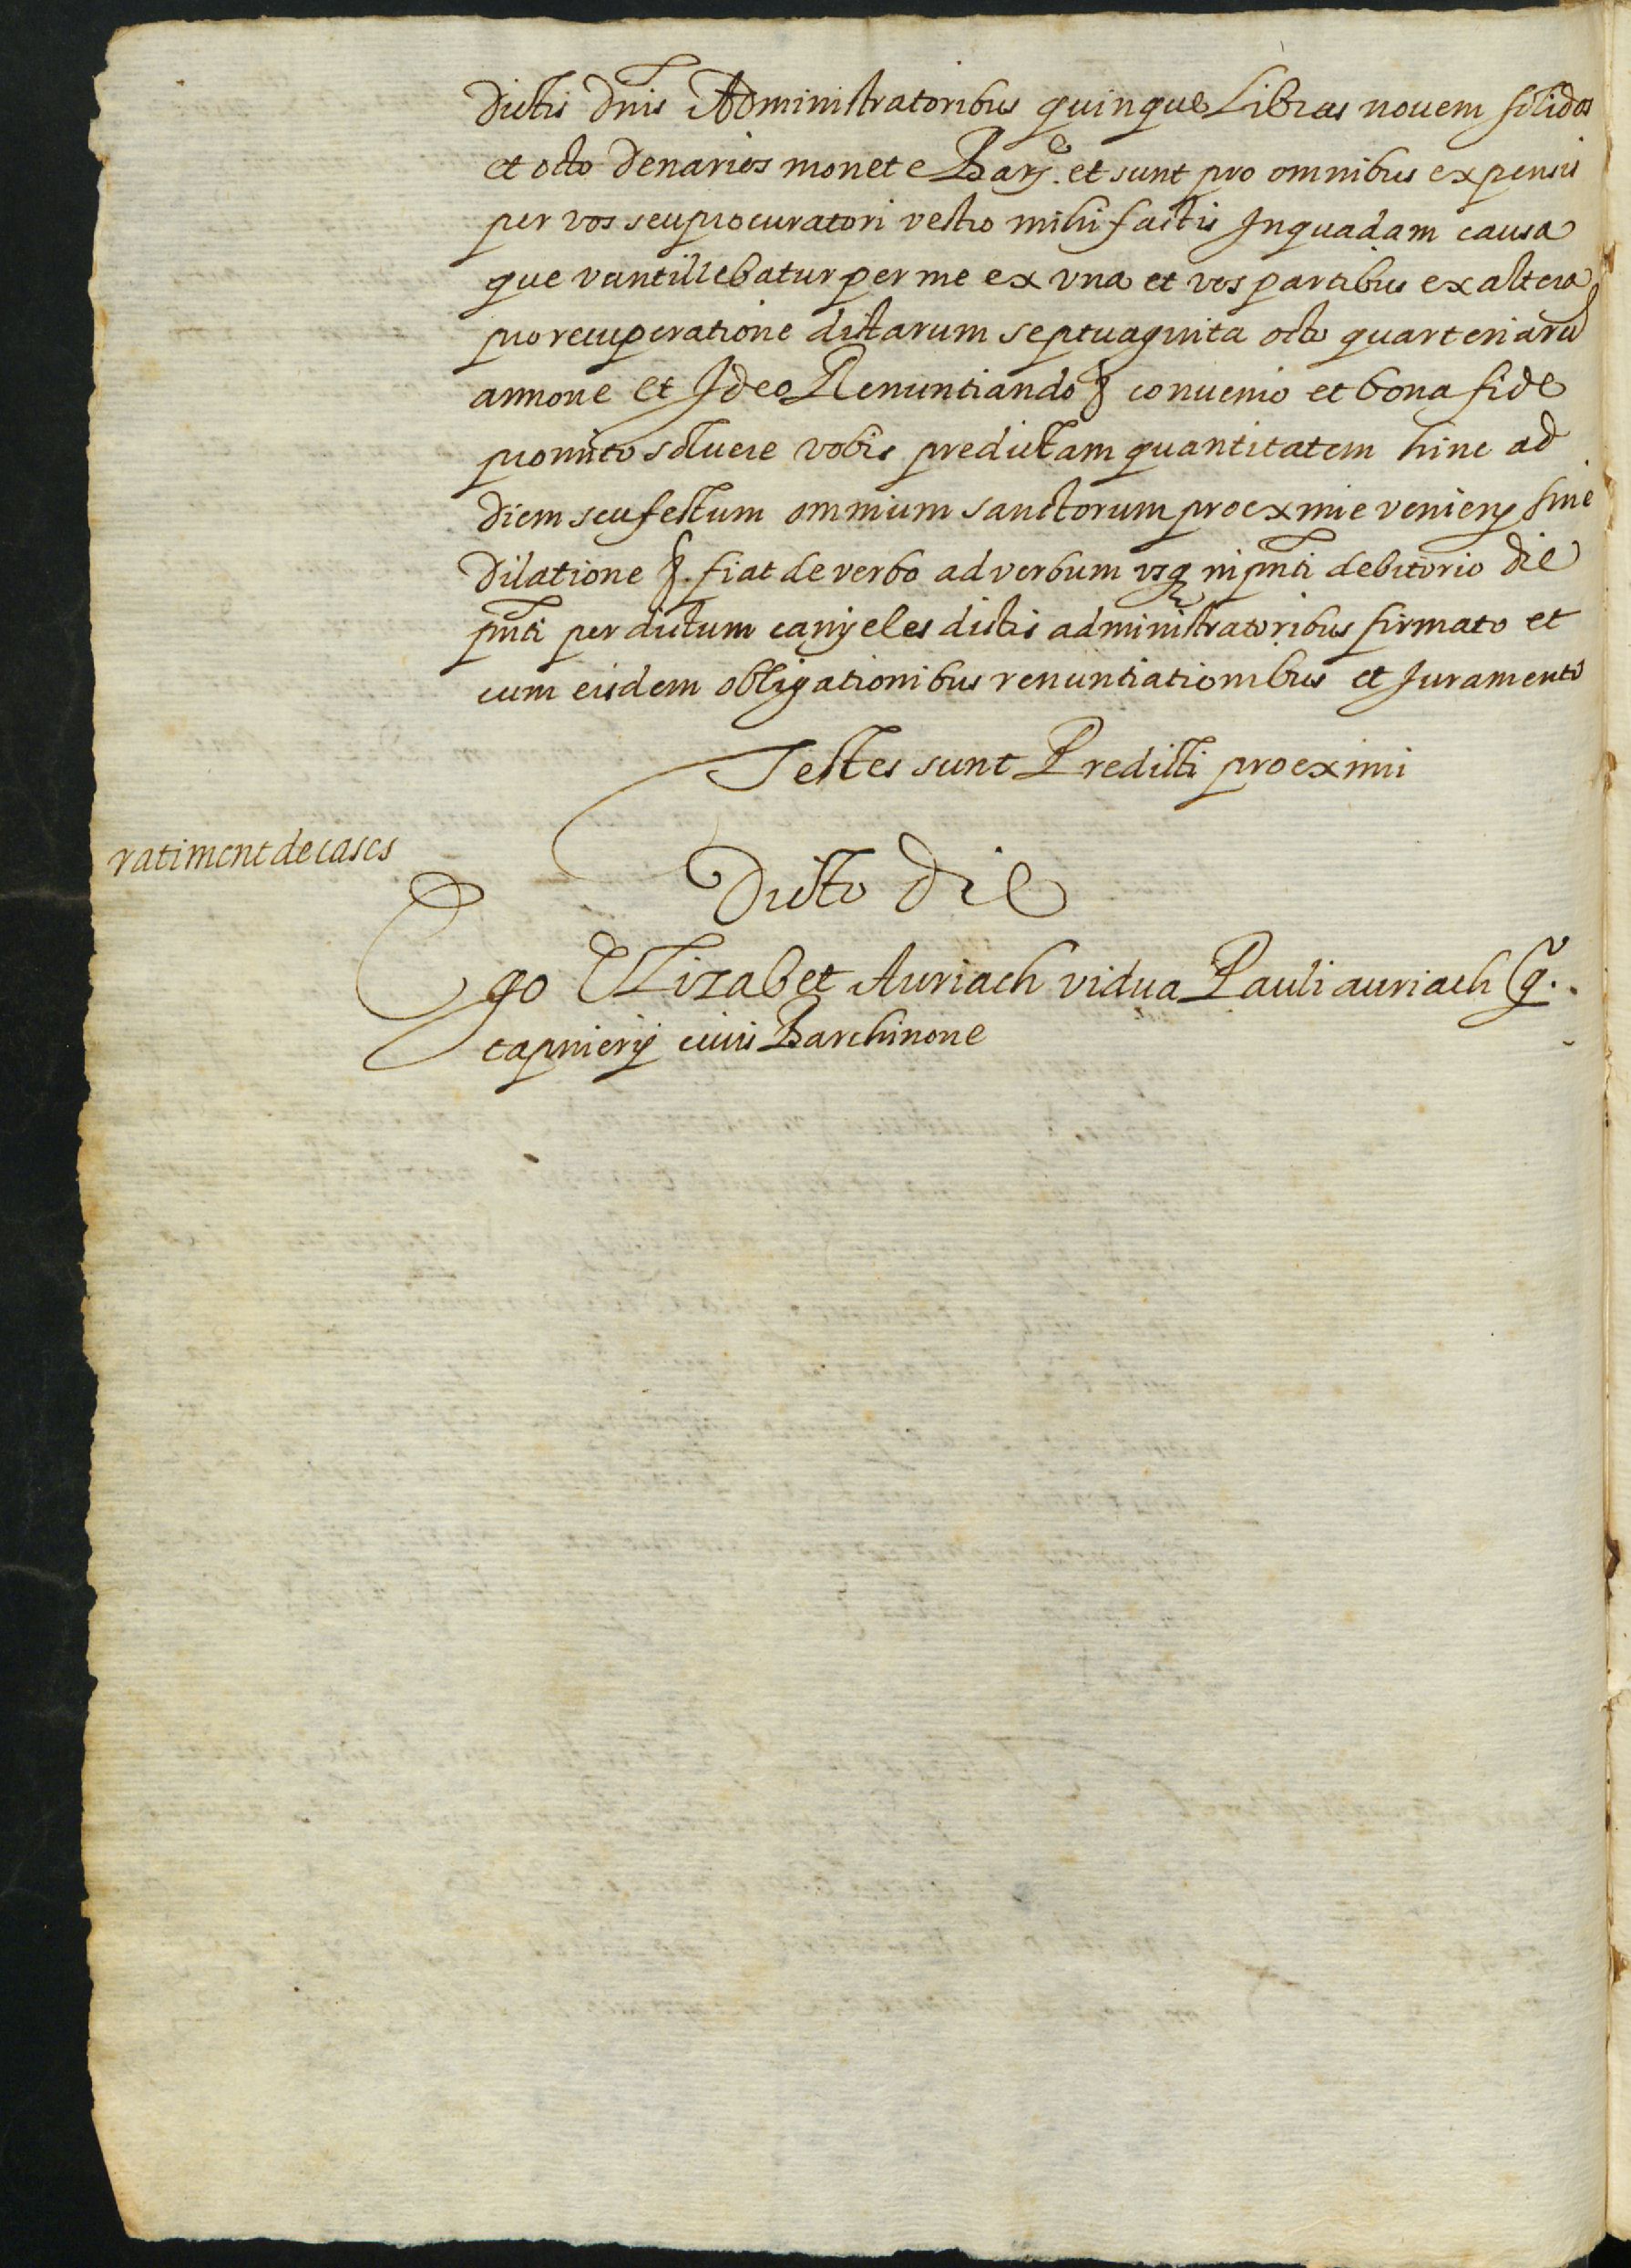 Dictis Dnis Administratoribus quinque Libras nouem solidos
et octo Denarios monete Barȷ̃. et sunt pro omnibus expensis
per vos seu procuratori vestro mihi factis In quadam causa
que vantillebatur per me ex vna et vos partibus ex altera
pro recuperatione dictarum septuaguita octo quarteriarũ
annone et Ideo Renuntiando & conuenio et bona fide
promito soluere vobis predictam quantitatem hinc ad
Diem seu festum omnium sanctorum proexime venienẏ sine
Dilatione &. fiat de verbo ad verbum vsq in pnti debitorio die
pnti per dictum canyeles dictis administratoribus firmato et
cum eisdem obligationibus renuntiationibus et Juramento
Testes sunt Predicti proeximi
ratiment de cases
Dicto die
Ego Elizabet Auriach vidua Pauli auriach q̊.
capnierij ciuis Barchinone